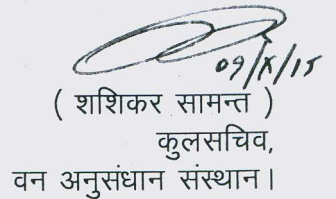 09/X/15
( शशिकर सामन्त )
कुलसचिव,
वन अनुसंधान संस्थान।